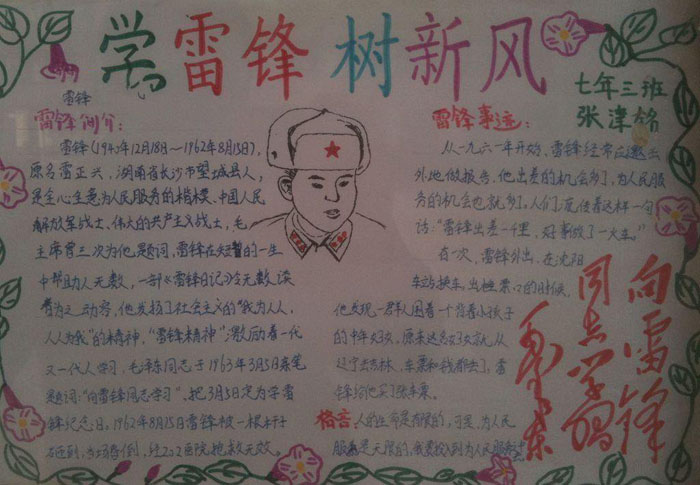 学雷锋树新风
七年三班
雷锋
雷锋简介:
雷锋(1940年12月18日~1962年8月15日),
原名雷正兴,湖南省长沙市望城县人,
是全心全意为人民服务的楷模、中国人民
解放军战士、伟大的共产主义战士,毛
主席曾三次为他题词,雷锋在短暂的一生
中帮助人无数,一部《雷锋日记》令无数读
者为之动容,他发扬了社会主义的“我为人人,
人人为我”的精神,“雷锋精神”激励着一代
又一代人学习,毛泽东同志于1963年3月5日亲笔
题词:“向雷锋同志学习”、把3月5日定为学雷
锋纪念日,1962年8月15日雷锋被一根杆子
砸到,当场昏倒,经202医院抢救无效。
雷锋事迹:
从一九六一年开始,雷锋经常应邀去
外地做报告,他出差的机会多了,为人民服
务的机会也就多了,人们流传着这样一句
话:“雷锋出差一千里,好事做了一火车。”
有一次,雷锋外出,在沈阳
车站换车,出检票口的时候,
他发现一群人围着一个背着小孩子
的中年妇女,原来这名妇女从
辽宁去吉林,车票和钱都丢了,雷
锋给他买了张车票。
格言 人的生命是有限的,可是,为人民
服务是无限的,我要投入到为人民服务中去
向雷锋
同志学习
毛泽东